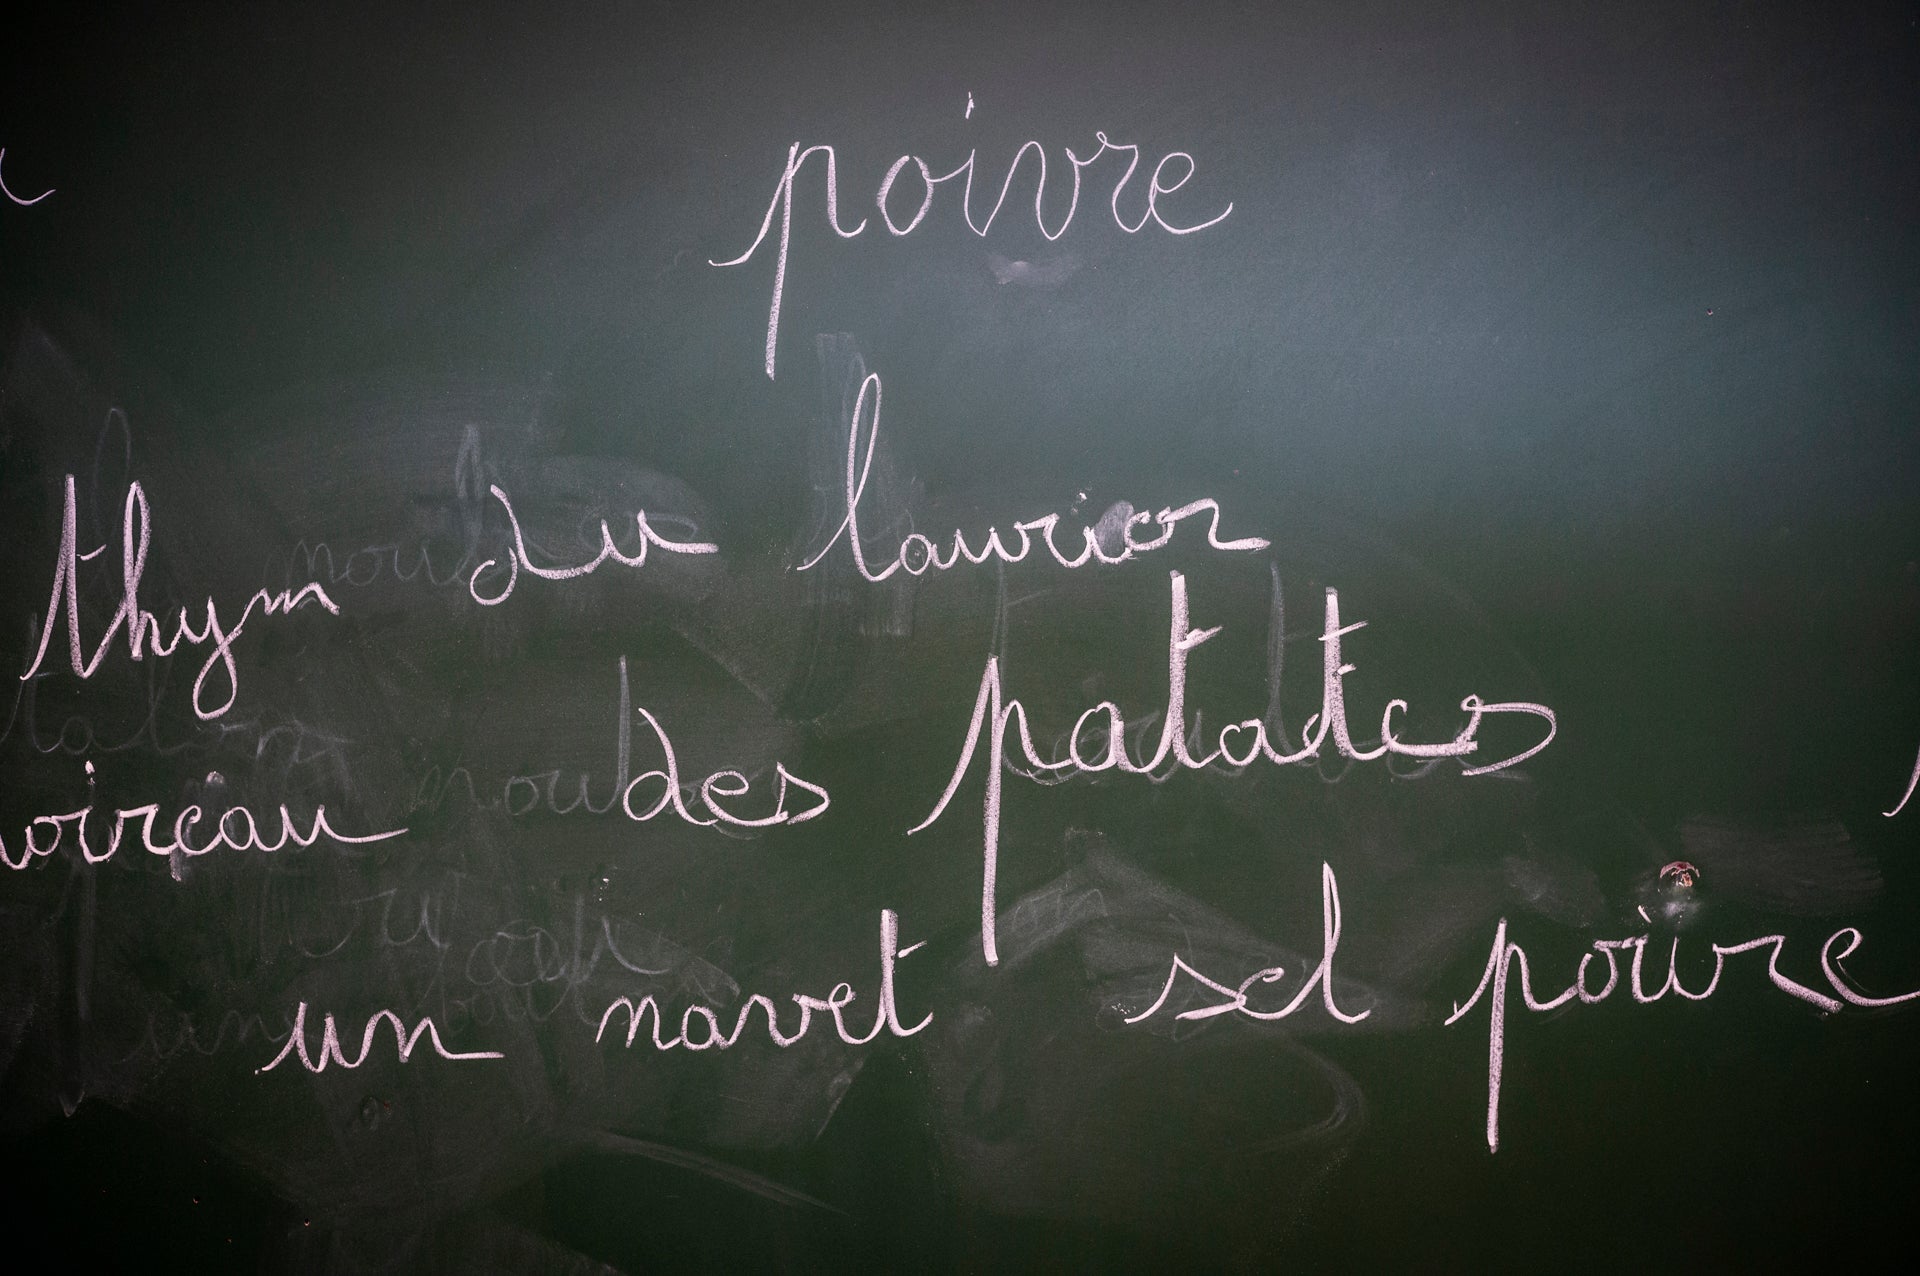 poivre
thym du laurier
oireau des patates
un navet sel poivre